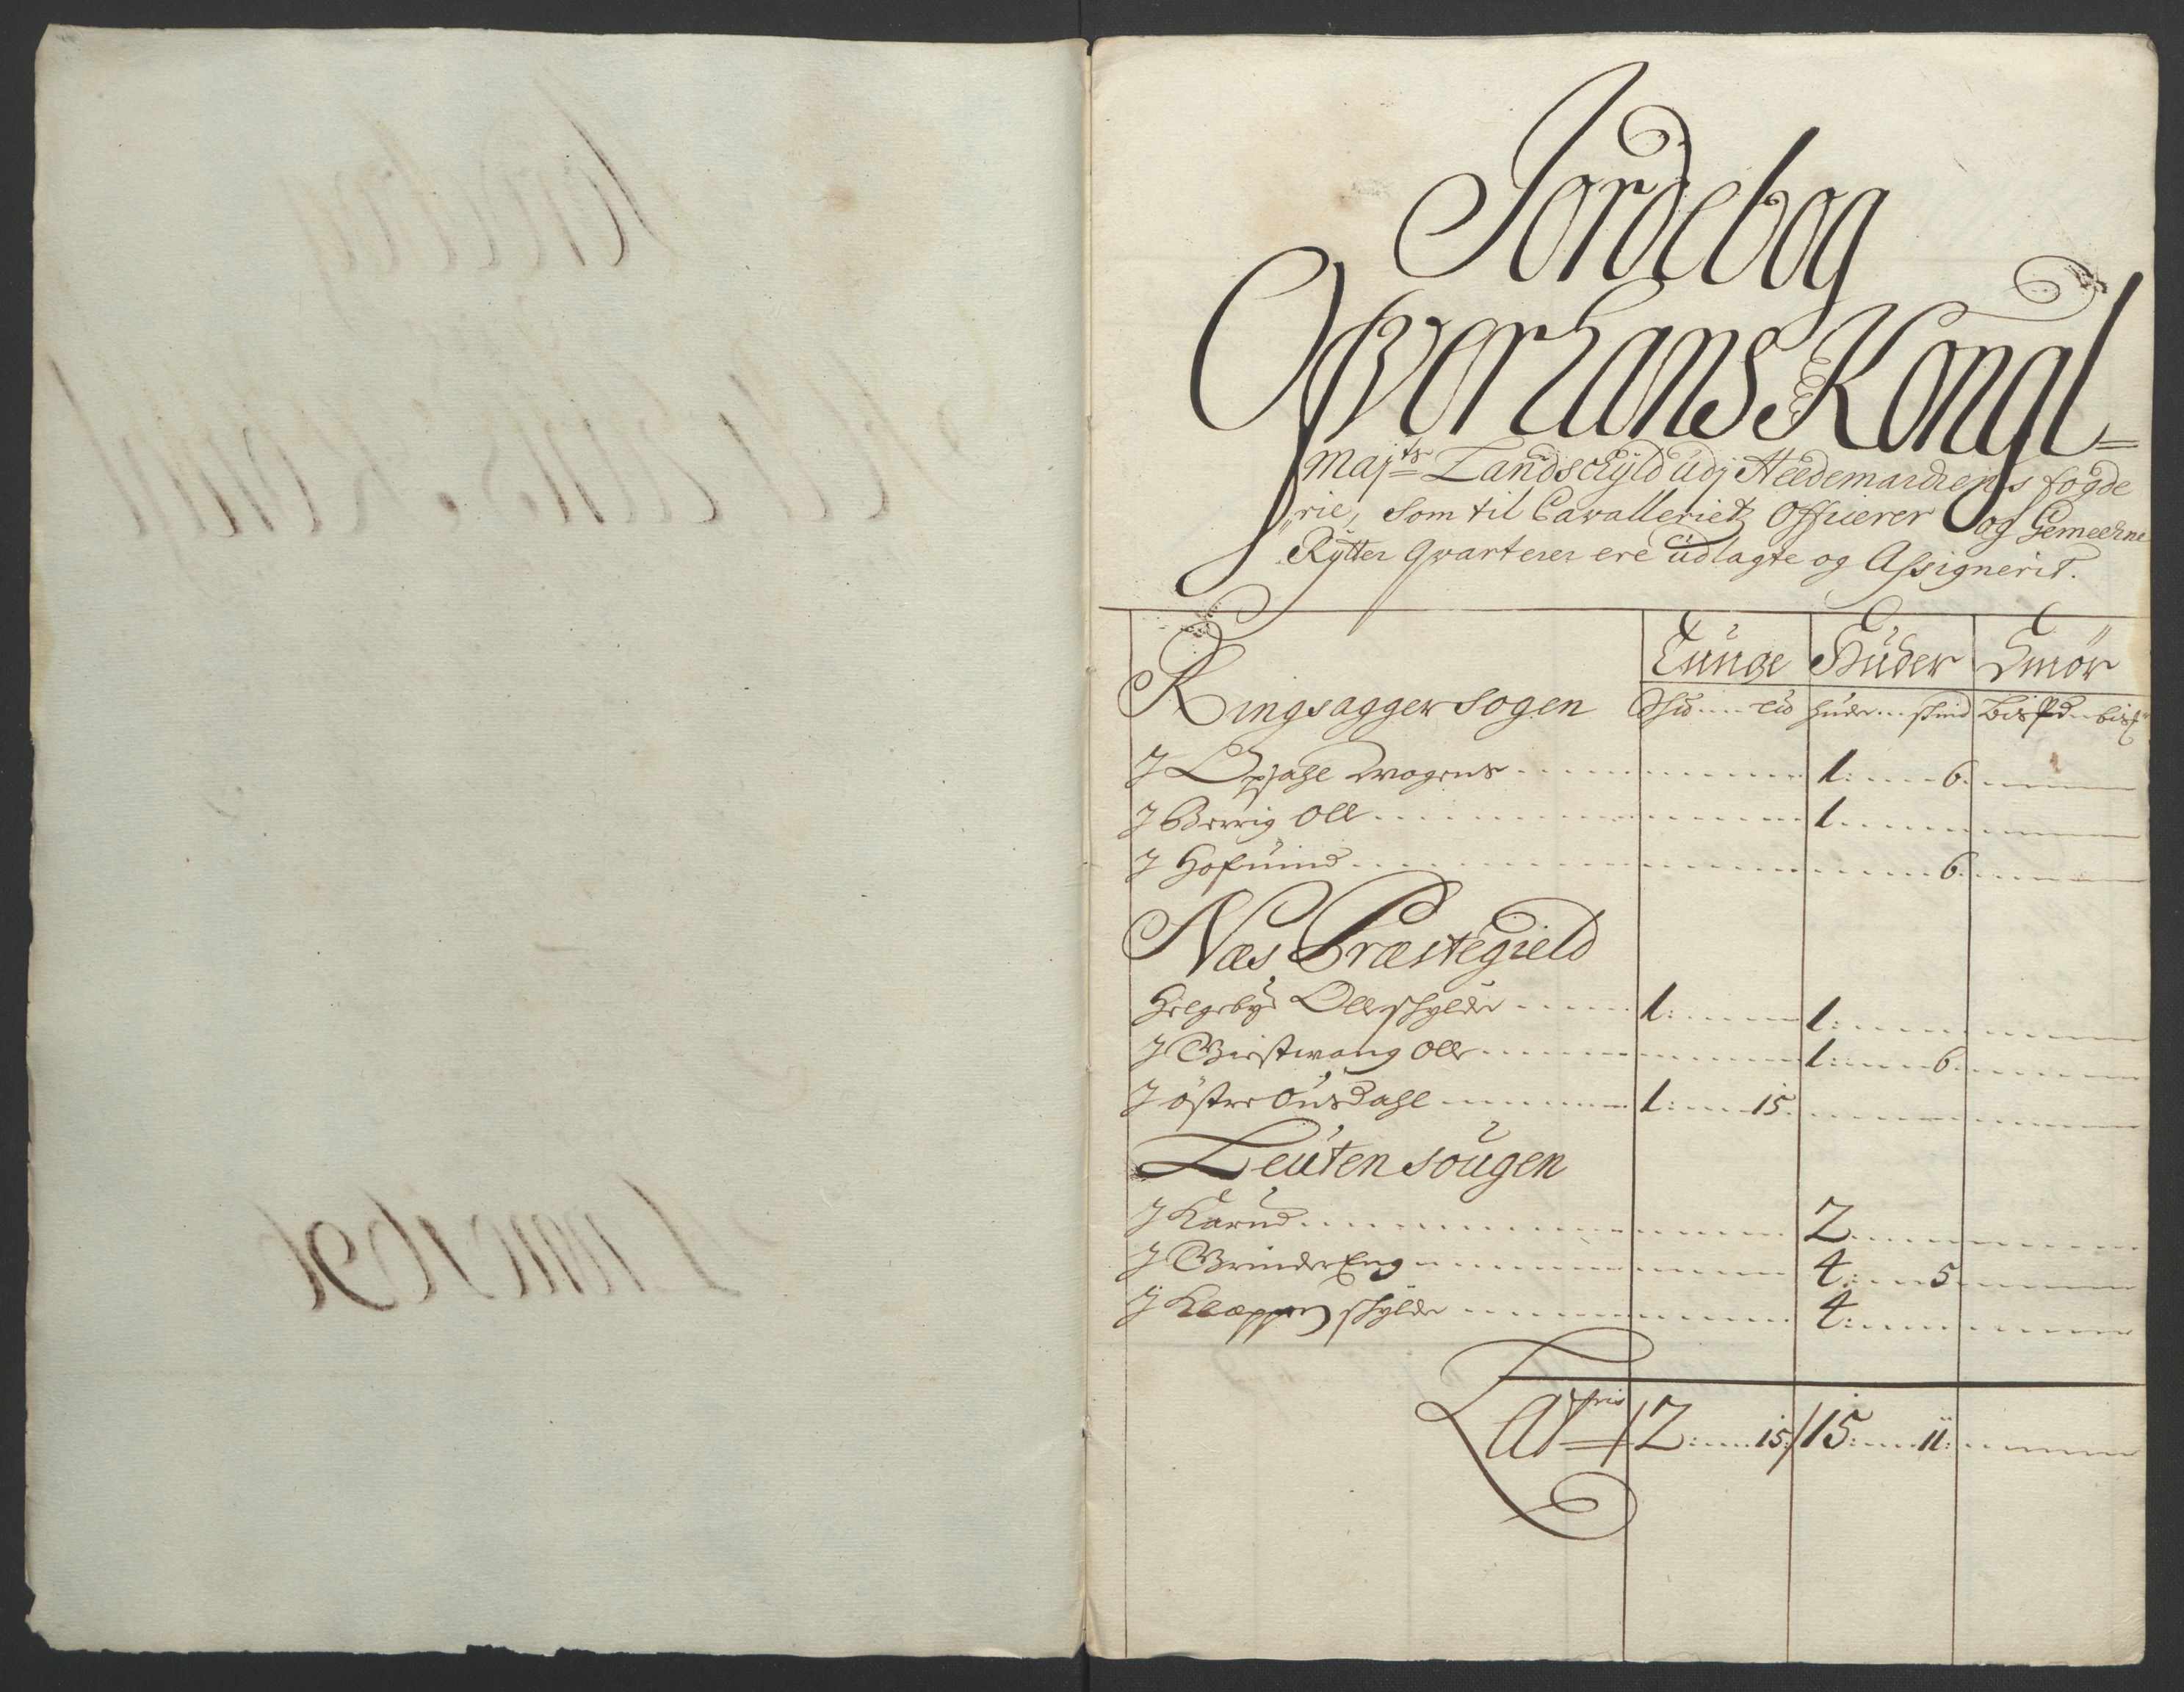 Jordebog
Ofver Hans Kongl=
Majts Landschÿld udj Heedemarckens fogde
rie, som til Cavalleriets Officerer og Gemeehne
Rÿtter qvarterer ere udlagte og Assignerit.
Tunge Huder Smør
Ringsagger sogen Skd .... ld huder ... skind Bispd .. bis
J Opsahl Mogens ..... 1: ..... 6
J Berrig Oll ..... 1 .....
J Hofuind ..... 6
Næs Præstegield
Helgebye Olles schylder ..... 1: ..... 1: .....
J Biestwang Oll ..... 1: ..... 6
J østre Ousdahl ..... 1: ..... 15
Leuten sougen
J Karud ..... 2 .....
J Grinder Eng ..... 4: ..... 5
J Klæppen schylder ..... 4: .....
Lat 2: ..... 15: / 15: ..... 11: